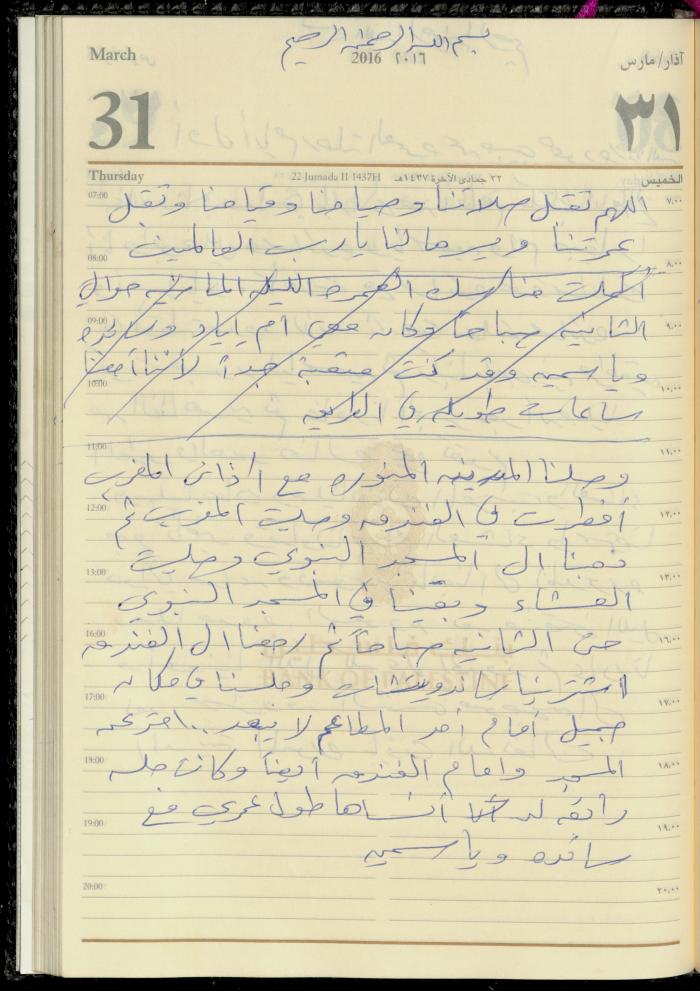 بسم الله الرحمن الرحيم
March 2016 ٢٠١٦ آذار/ مارس
31 ٣١
Thursday 22 Jumada II 1437H ٢٢ جمادى الآخرة ١٤٣٧هـ الخميس
07:00 اللهم تقبل صلاتنا وصيامنا وقيامنا وتقبل ٧:٠٠
عمرتنا ويسرها لنا يا رب العالمين
08:00 ٨:٠٠
أكملت مناسك العمره الليله الماضيه حوالي
09:00 الثانيه صباحاً وكان معي أم إياد وسائده ٩:٠٠
وياسمين وقد كنت متعبة جداً لأننا أمضينا
10:00 ١٠:٠٠
ساعات طويله في الطريق
11:00 ١١:٠٠
وصلنا المدينه المنوره مع اذان المغرب
12:00 أفطرت في الفندق وصليت المغرب ثم ١٢:٠٠
ذهبنا الى المسجد النبوي وصليت
13:00 ١٣:٠٠
العشاء وبقينا في المسجد النبوي
16:00 حتى الثانيه صباحاً ثم رجعنا الى الفندق ١٦:٠٠
BANK OF PALESTINE
اشترينا ساندويتشات وجلسنا في مكان
17:00 ١٧:٠٠
جميل أمام أحد المطاعم لا يبعد ..
18:00 المسجد وامام الفندق أيضاً وكانت جلسه ١٨:٠٠
رائعه لن أنساها طول عمري مع
19:00 ١٩:٠٠
سائده وياسمين
20:00 ٢٠:٠٠